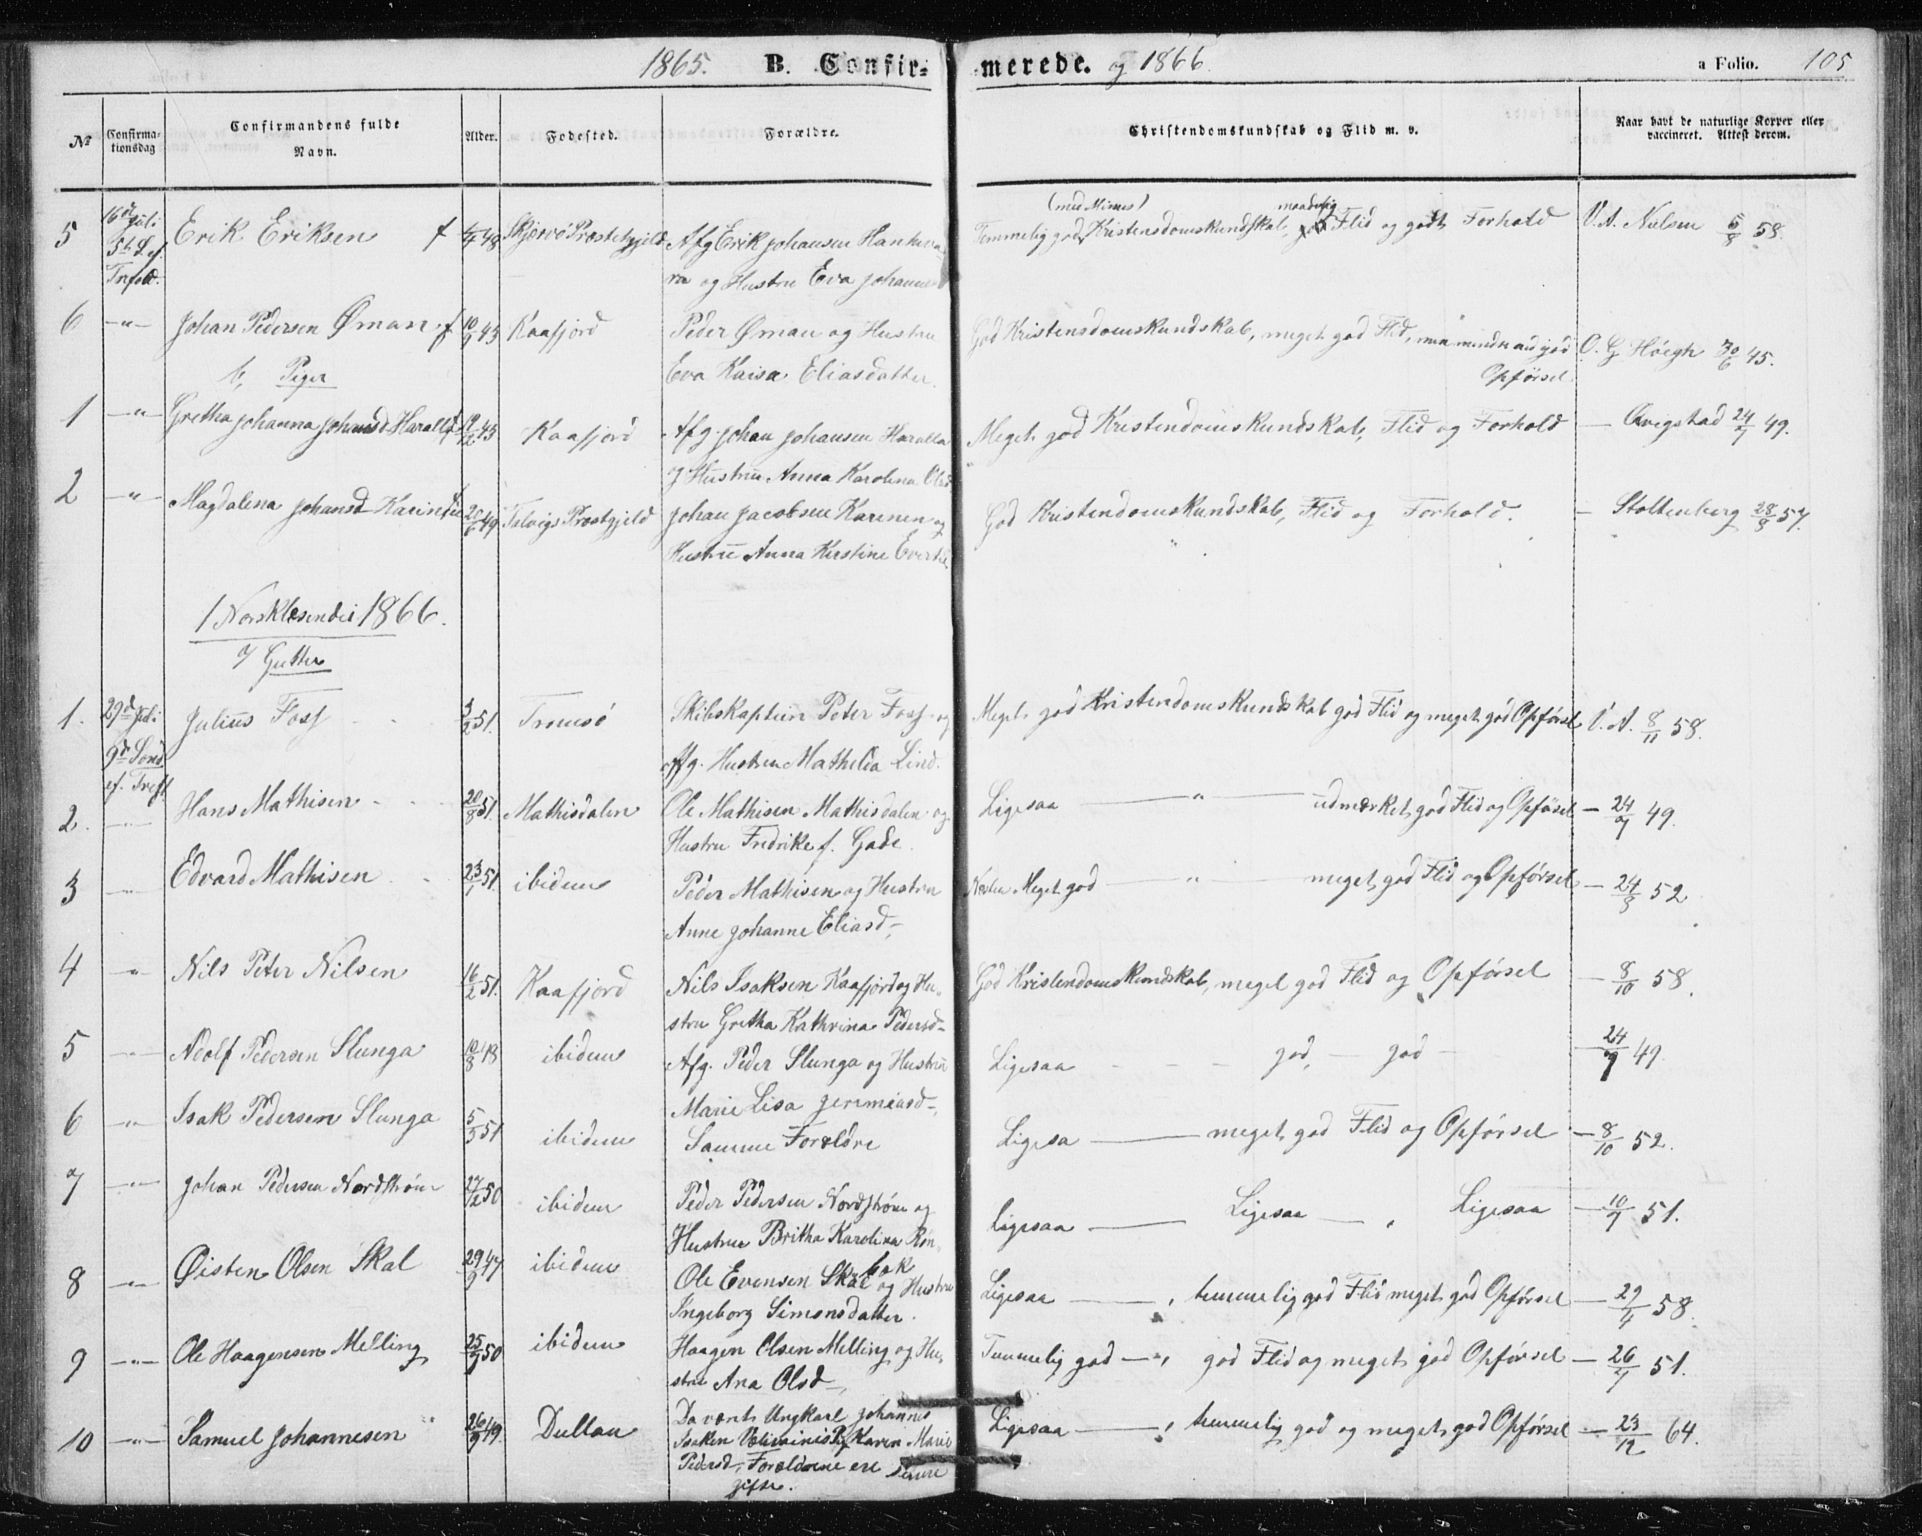 1865. B. Confir- merede. og 1866. a Folio. 105
№ Confirmationsdag Confirmandens fulde Navn. Alder. Fødested. Forældre. Christendomskundskab og Flid m. v. Naar havt de naturlige Kopper eller vaccineret. Attest derom.
5 16de Juli 5te S. ef. Trefold. Erik Eriksen f 48 Skjervø Præstegjeld Afg Erik Johansen
og Hustru Eva Johanne
(med Minus) maadelig
Temmelig god Kristensdomskundskab, Flid og godt Forhold V. A. Nielsen 5/8 58.
6 -"- Johan Pedersen Øman f 10/9 43 Kaafjord Peder Øman og Hustru
Eva Kaisa Eliasdatter.
God Kristensdomskundskab, meget god Flid, men mindre god
Opførsel O. G Høegh 30/6 45.
b, Piger
1 -"- Gretha Johanna Johansd Haralla 43 Kaafjord Afg. Johan Johansen Haralla
og Hustru Anna Karolina Olsd
Meget god Kristendomskundskab, Flid og Forhold - Qvigstad 24/7 49.
2 -"- Magdalena Johansd Karinen 20/6 49 Talvigs Præstgjeld Johan Jacobsen Karinen og
Hustru Anna Kirstine Evertsd
God Kristendomskundskab, Flid og Forhold. - Stoltenberg 28/8 57.
1 Norsklæsende i 1866.
a/ Gutter
1. 29de Juli 9de Sønd ef. Tref. Julius Foss 3/2 51. Tromsø Skibskaptein Peter Foss og
afg. Hustru Mathilda Lind.
Meget god Kristendomskundskab god Flid og meget god Opførsel V. A. 8/11 58.
2. -"- Hans Mathisen 20/8 51. Mathisdalen Ole Mathisen Mathisdalen og
Hustru Fredrike f. Gade.
Ligesaa -"- udmærket god Flid og Opførsel - 24/7 49.
3 -"- Edvard Mathisen 23/1 51 ibidem Peder Mathisen og Hustru
Anne Johanne Eliasd-,
Næsten Meget god -"- meget god Flid og Opførsel - 24/5 52
4 " Nils Peter Nilsen 16/2 51. Kaafjord Nils Isaksen Kaafjord og Hu-
stru Gretha Kathrina Pedersd-
God Kristendomskundskab, meget god Flid og Opførsel - 8/10 58.
5 -"- Adolf Pedersen Slunga 10/8 48 ibidem Afg. Peder Slunga og Hustru
Marie Lisa Jeremiasd-,
Ligesaa - god, - god - 24/7 49.
6 -"- Isak Pedersen Slunga 51 ibidem Samme Forældre
Ligesa - meget god Flid og Opførsel - 8/10 52.
7 -"- Johan Pedersen Nordstrøm 27/12 50 ibidem Peder Pedersen Nordstrøm og
Hustru Britha Karolina Rön-
bak
Ligesaa - Ligesaa - Ligesaa - 10/7 51.
8 -"- Øisten Olsen Skal 29/9 47 ibidem Ole Evensen Skal og Hustru
Ingeborg Simonsdatter.
Ligesaa -, temmelig god Flid meget god Opførsel - 29/4 58.
9 -"- Ole Haagensen Melling 25/9 50 ibidem Haagen Olsen Melling og Hu-
stru Ana Olsd-,
Temmelig god -, god Flid og meget god Opførsel - 26/7 51.
10 -"- Samuel Johannesen 26/9 49. Dullau Da værte Ungkarl Johannes
Isaksen Pg Karen Marie
Pedersd-, Forældrene ere senere
gifte.
Ligesaa -, temmelig god og meget god Opførsel - 23/12 64.